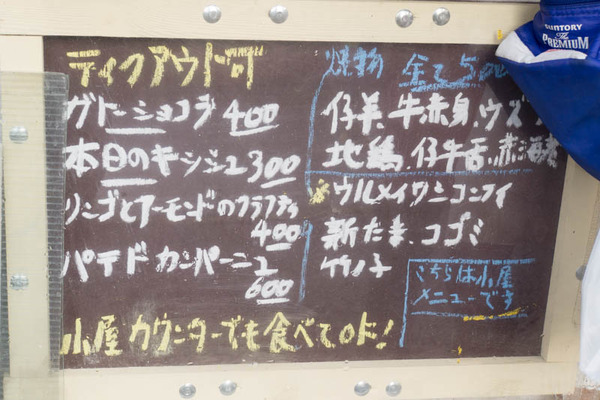 テイクアウト可
ガトーショコラ 400
本日のキッシュ 300
リンゴとアーモンドのフラフティ
400
パテドカンパーニュ
600
小屋カウンターでも食べてOK!
焼物 全て500
仔羊、牛赤身、ウズラ
地鶏、仔牛舌、燕海老
ウルメイワシコンフィ
新たま、コゴミ
竹ノ子
こちらは小屋
メニューです
SUNTORY
The
PREMIUM